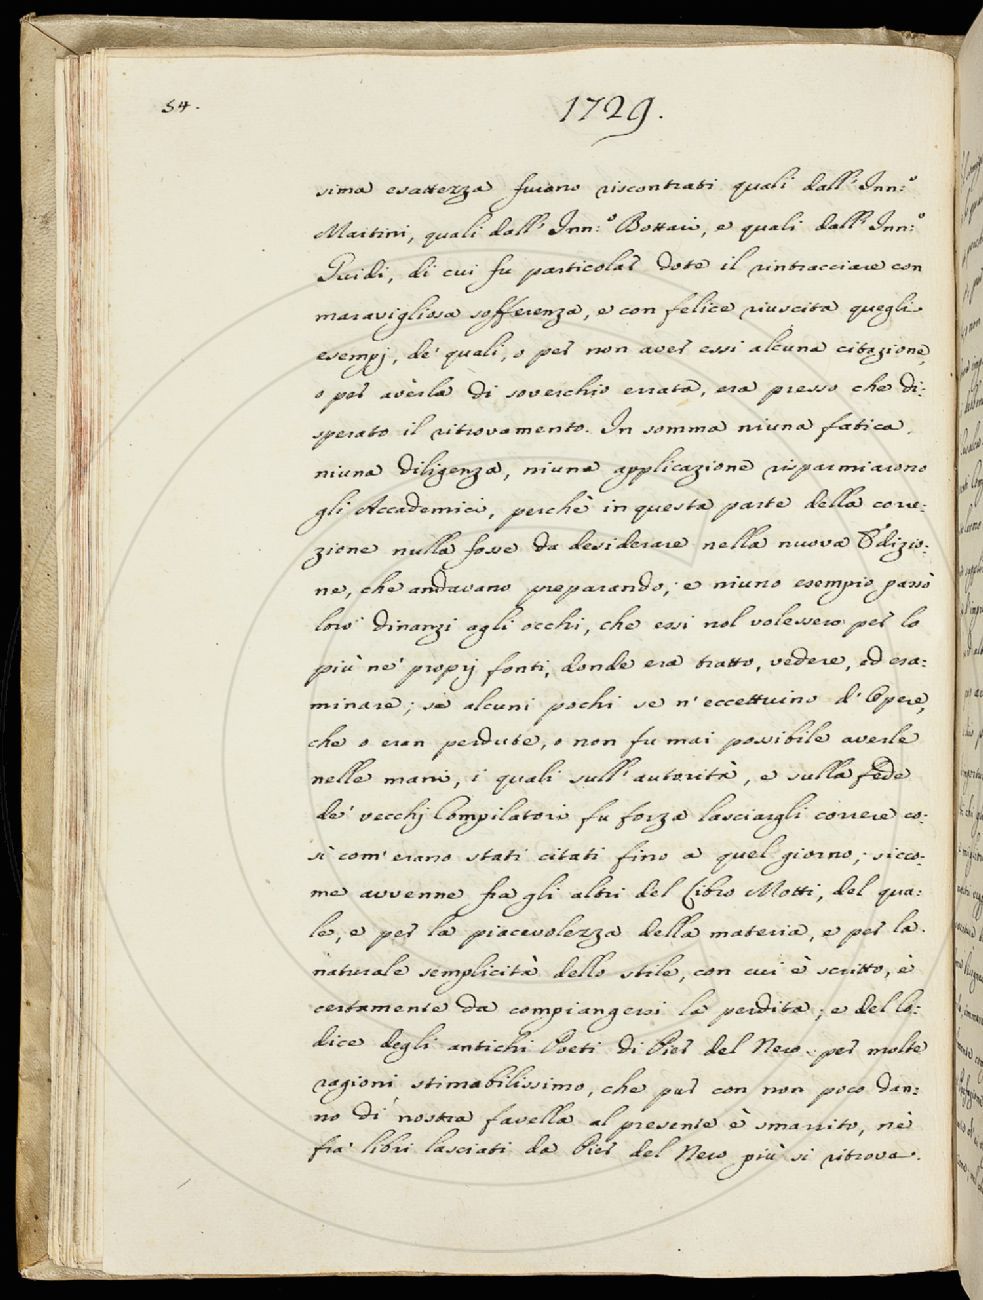 54.
1729.
sima esattezza furono riscontrati quali dall' Inn:º
Martini, quali dall' Inn:º Bottari, e quali dall' Inn:º
Guidi, di cui fu particolar dote il rintracciare con
maravigliosa sofferenza, e con felice riuscita quegli
esempj, de' quali, o per non aver essi alcuna citazione,
o per averla di soverchio errata, era presso che di:
sperato il ritrovamento. In somma niuna fatica,
niuna diligenza, niuna applicazione risparmiarono
gli Accademici, perchè in questa parte della corre:
zione nulla fosse da desiderare nella nuova Edizio:
ne, che andavano preparando; e niuno esempio passò
loro dinanzi agli occhi, che essi nol volessero per lo
più ne' proprj fonti, donde era tratto, vedere, ed esa:
minare; se alcuni pochi se n' eccettuino d' Opere,
che o eran perdute, o non fu mai possibile averle
nelle mani, i quali sull' autorità, e sulla fede
de' vecchj Compilatori fu forza lasciargli correre co:
sì com' erano stati citati fino a quel giorno; sicco:
me avvenne fra gli altri del Libro Motti, del qua:
le, e per la piacevolezza della materia, e per la
naturale semplicità dello stile, con cui è scritto, è
certamente da compiangersi la perdita; e del Co:
dice degli antichi Poeti di Pier del Nero per molte
ragioni stimabilissimo, che pur con non poco dan:
no di nostra favella al presente è smarrito, nè
fra' libri lasciati da Pier del Nero più si ritrova.